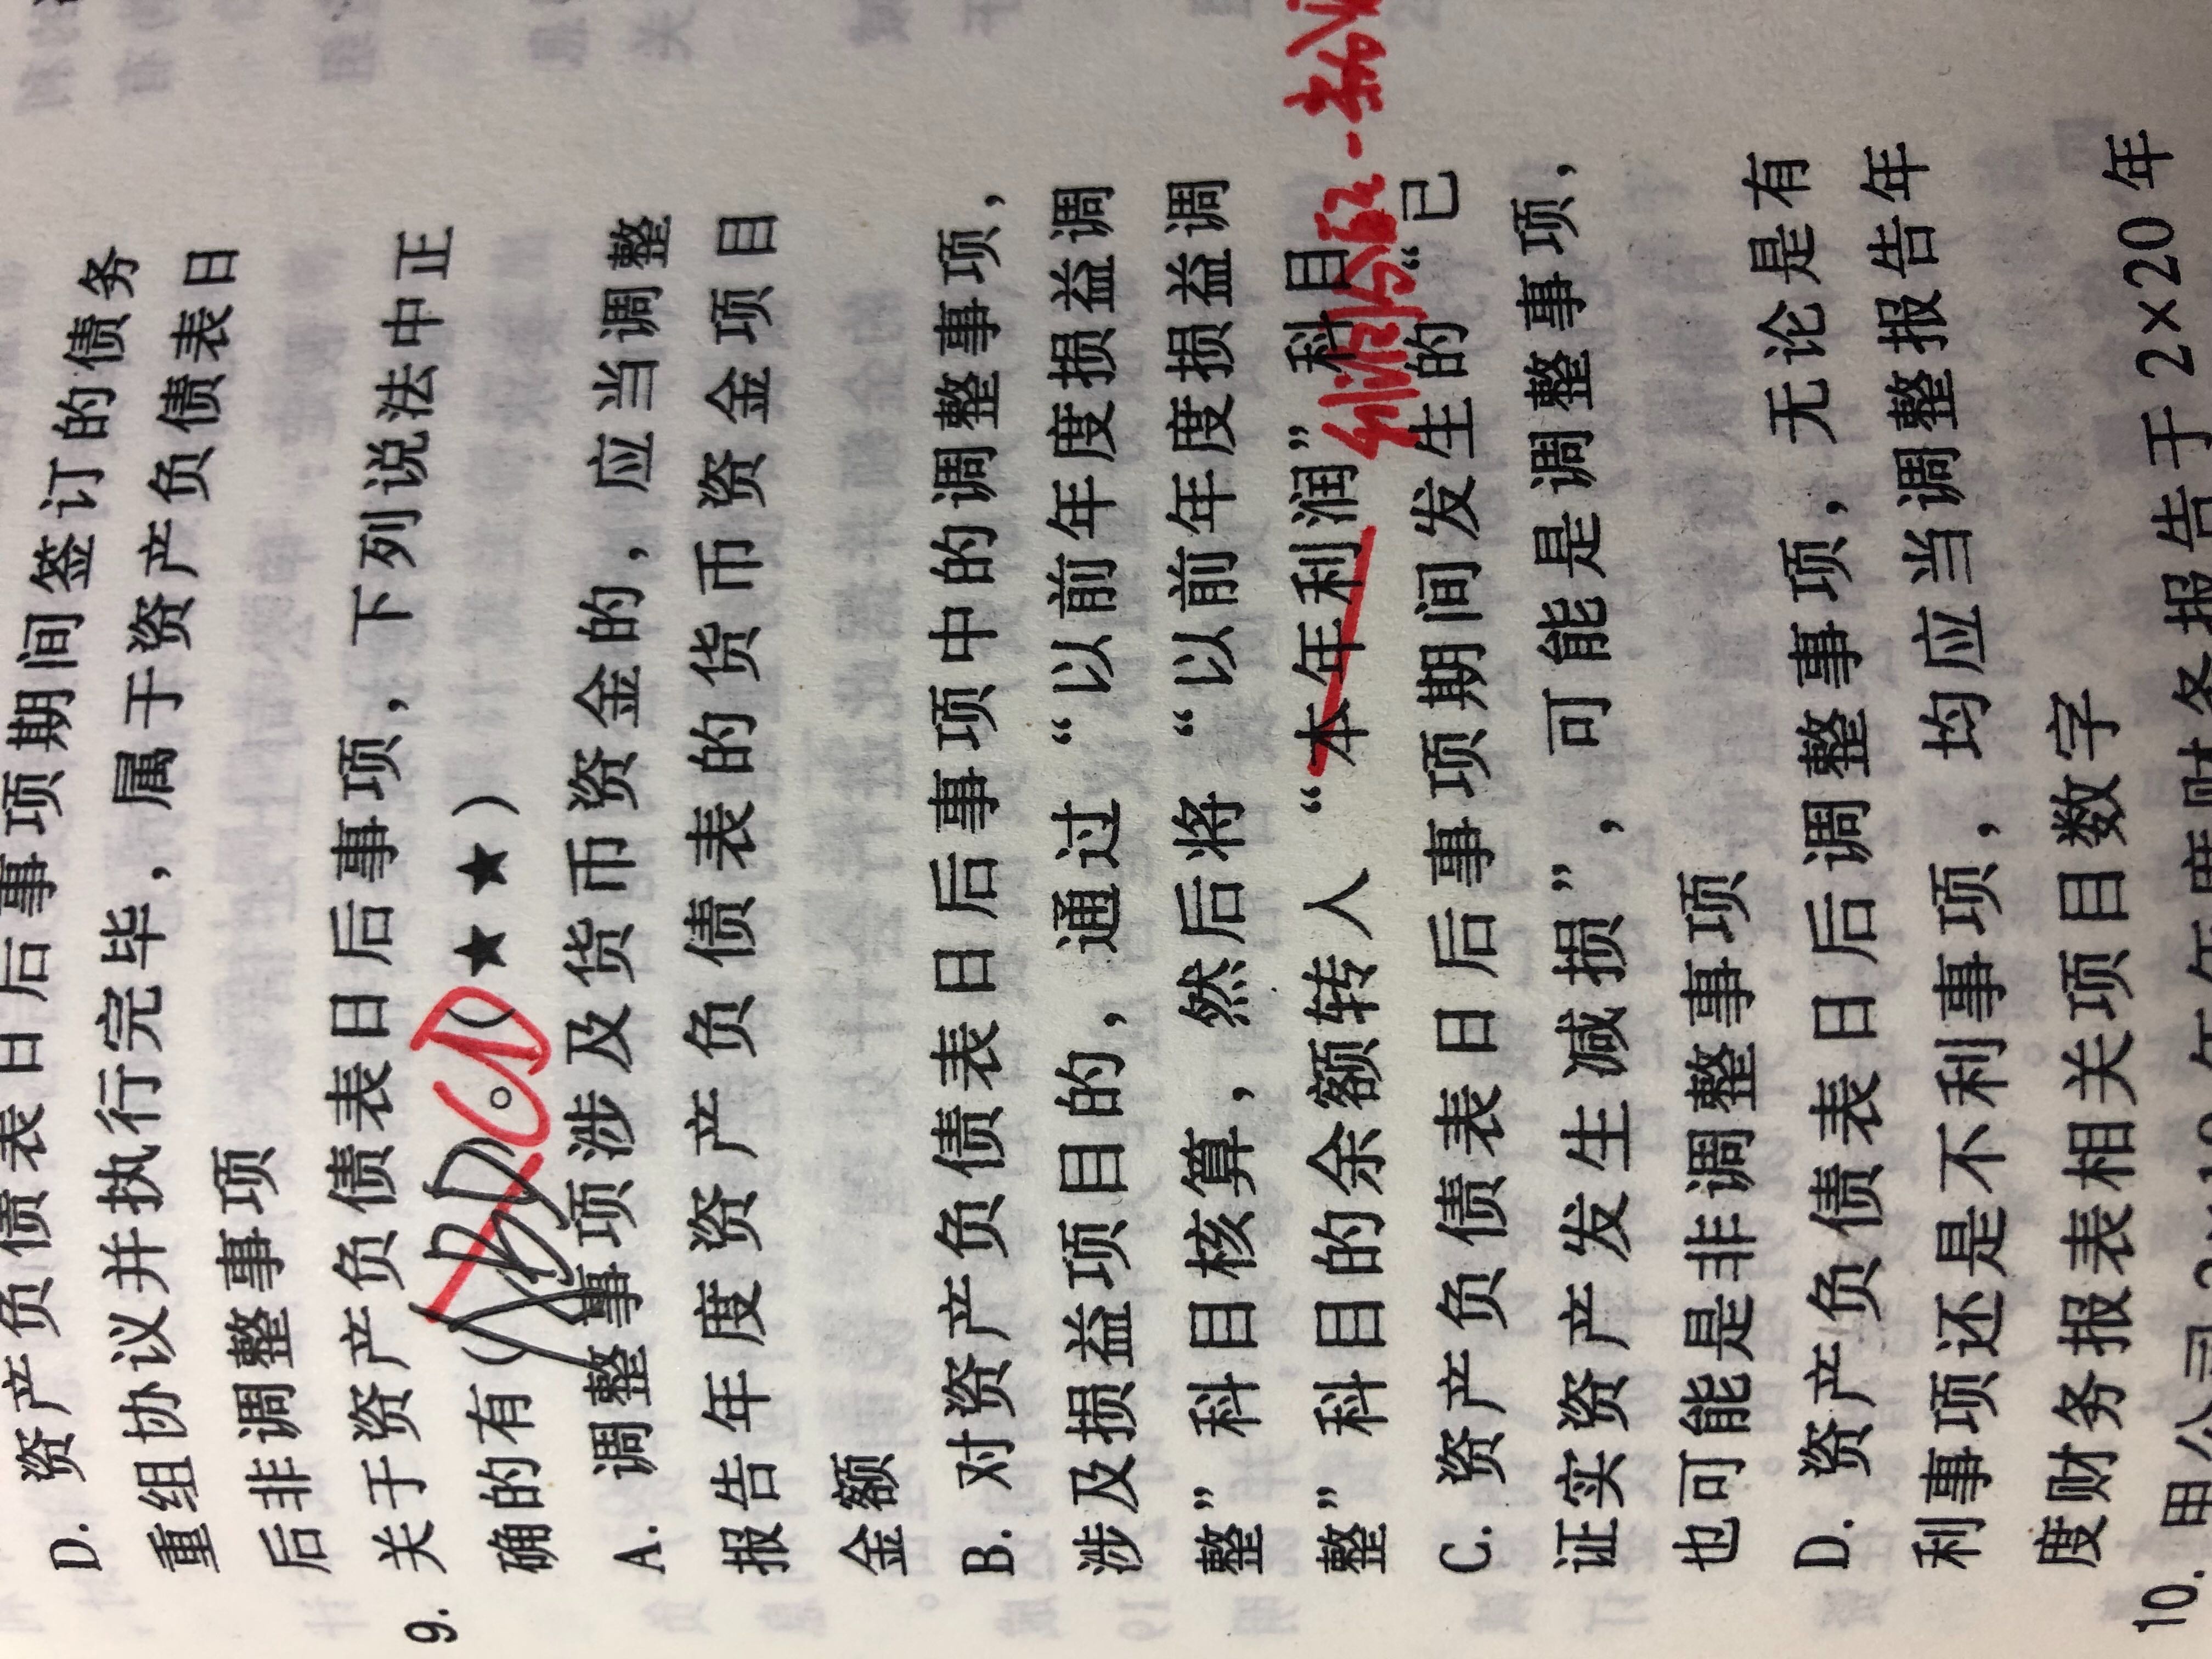 D. 资产负债表日后事项期间签订的债务
重组协议并执行完毕，属于资产负债表日
后非调整事项
9. 关于资产负债表日后事项，下列说法中正
确的有( ABD CD )。(★★)
A. 调整事项涉及货币资金的，应当调整
报告年度资产负债表的货币资金项目
金额
B. 对资产负债表日后事项中的调整事项，
涉及损益项目的，通过“以前年度损益调
整”科目核算，然后将“以前年度损益调
整”科目的余额转人“本年利润”科目
利润分配-未分
C. 资产负债表日后事项期间发生的“已
证实资产发生减损”，可能是调整事项，
也可能是非调整事项
D. 资产负债表日后调整事项，无论是有
利事项还是不利事项，均应当调整报告年
度财务报表相关项目数字
10. 甲公司2×19年年度财务报告于2×20年